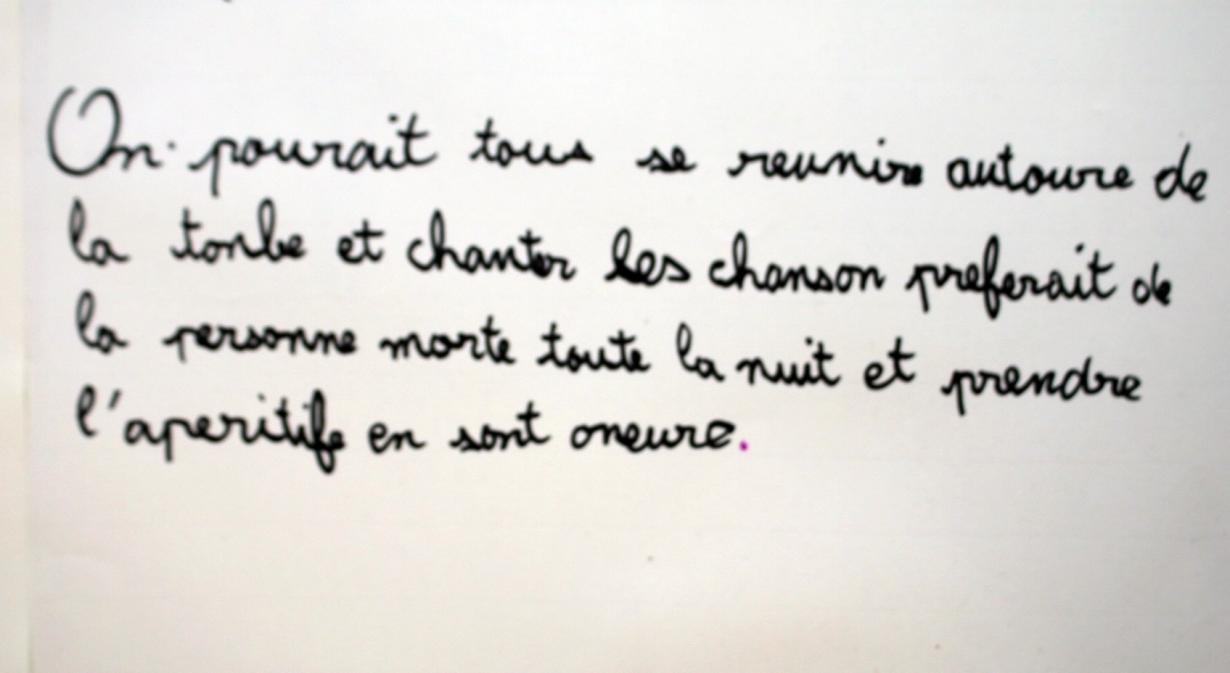 On pourait tous se reunire autoure de
la tonbe et chanter les chanson preferait de
la personne morte toute la nuit et prendre
l'aperitife en sont oneure.